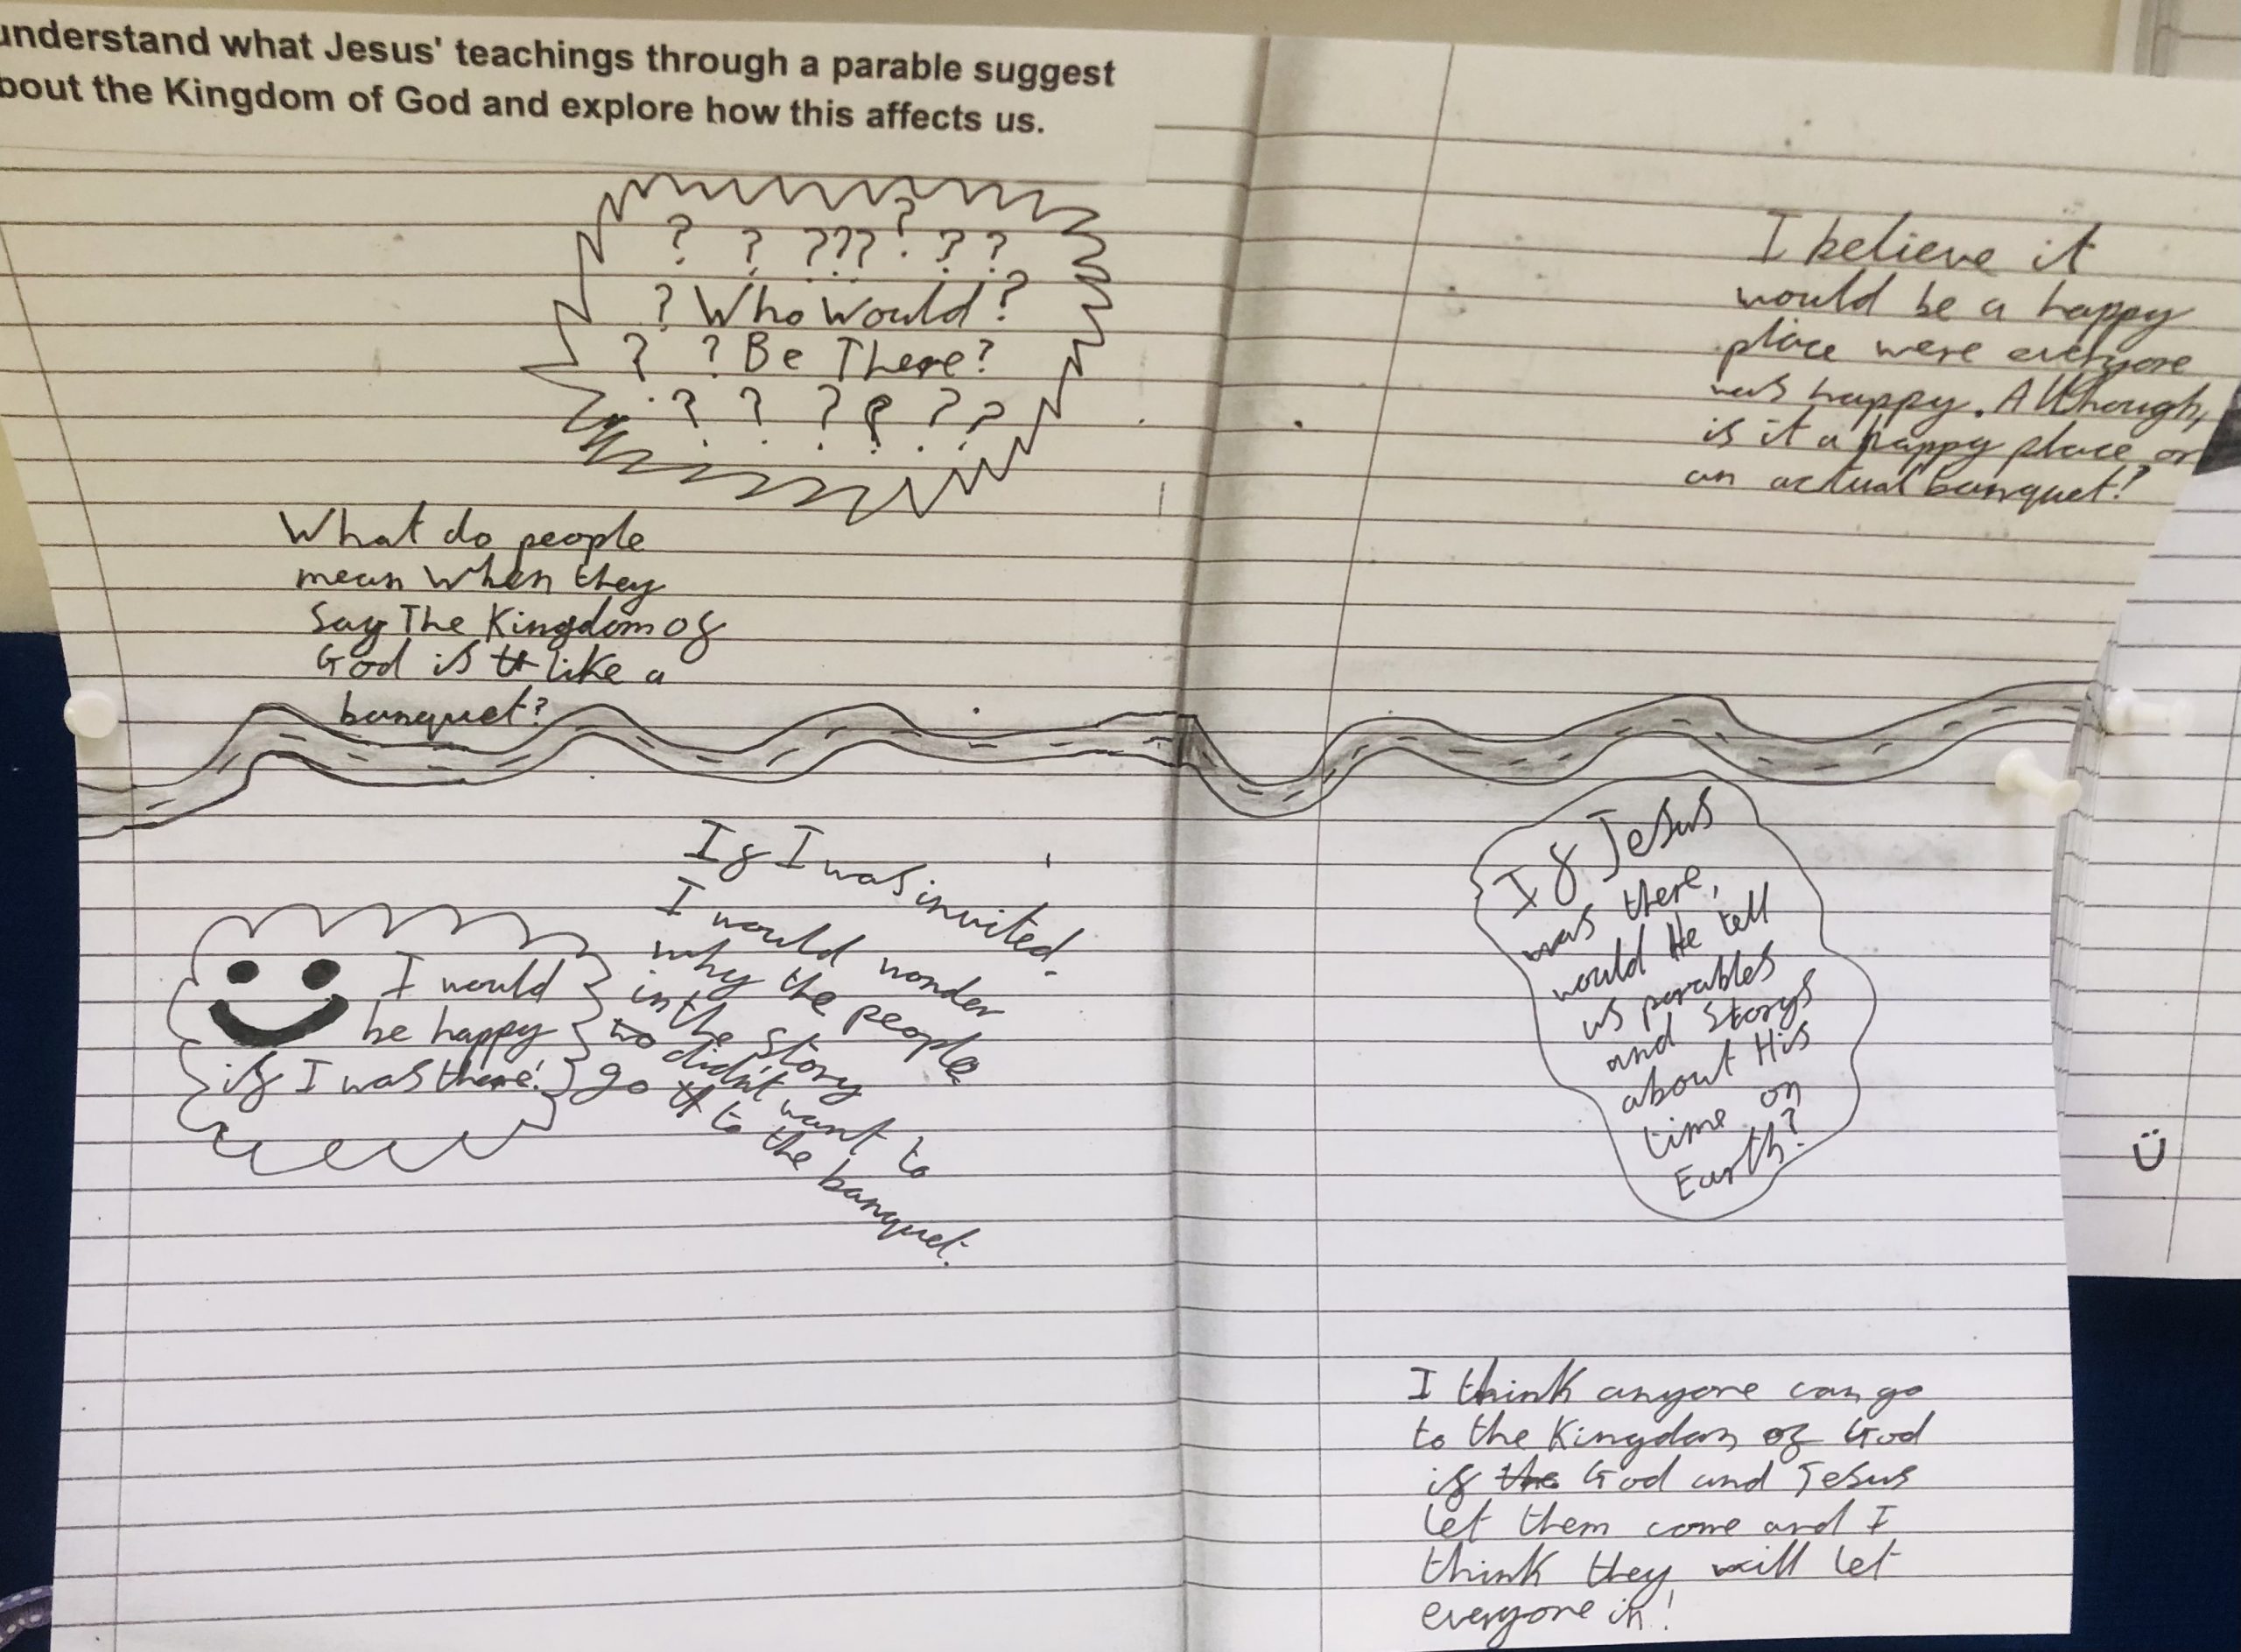 understand what Jesus' teachings through a parable suggest
bout the Kingdom of God and explore how this affects us.
? ? ??? ? ? ?
? Who Would ?
? ? Be There?
? ? ? ? ? ?
What do people
mean when they
Say The Kingdom of
God is like a
banquet?
I believe it
would be a happy
place were everyone
was happy. Although,
is it a happy place or
an actual banquet?
I would
be happy
if I was there!
If I was invited.
I would wonder
why the people
in the story
didn't want to
go to the banquet.
If Jesus
was there,
would He tell
us parables
and Storys
about His
time on
Earth?
I think anyone can go
to the Kingdom of God
if God and Jesus
let them come and I
think they will let
everyone in!